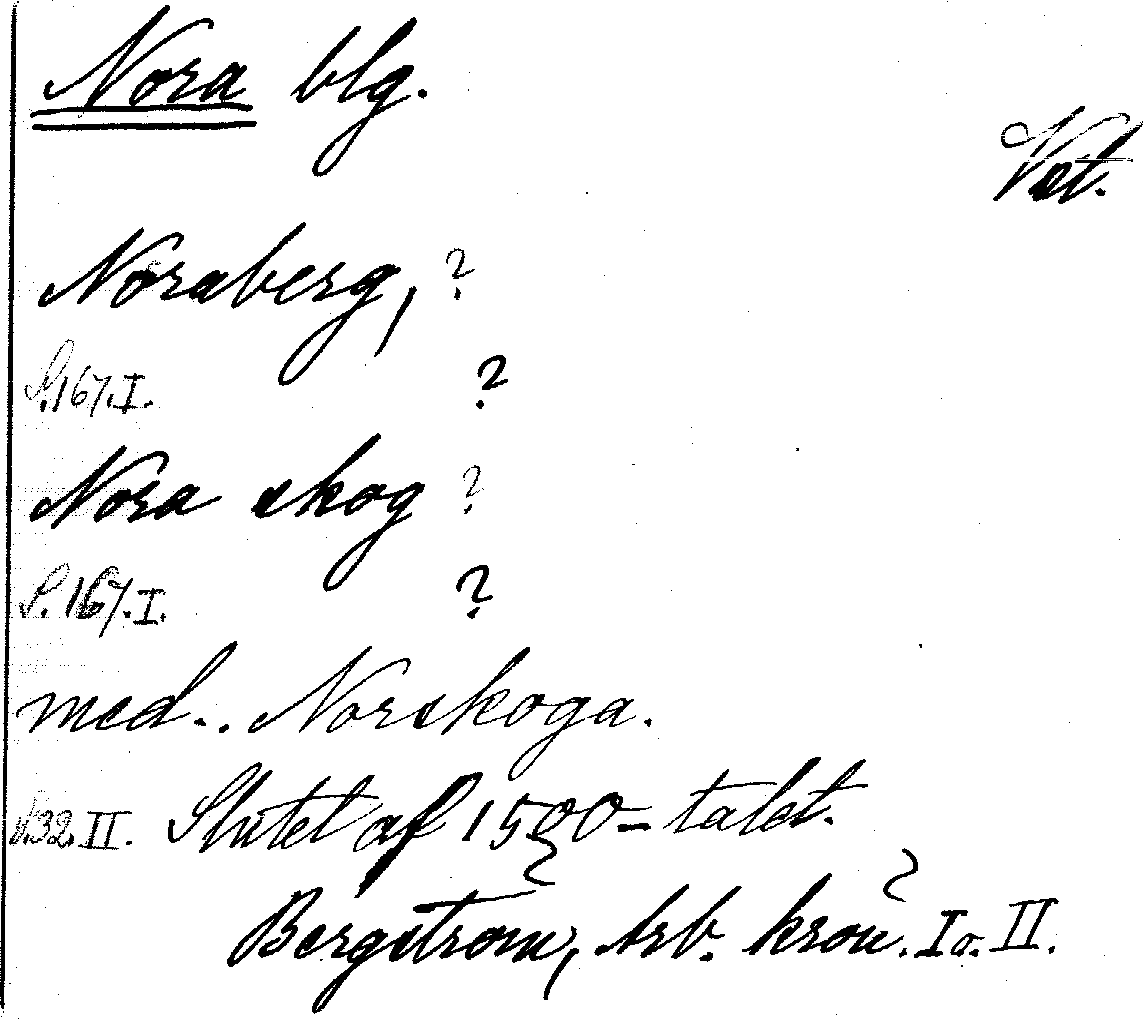 Nora blg.
Vet.
Noraberg, ?
S. 167. I. ?
Nora skog ?
S. 167. I. ?
med.. Norskoga.
S. 32. II. Slutet af 1500-talet.
Bergström, Arb. krön. I o. II.